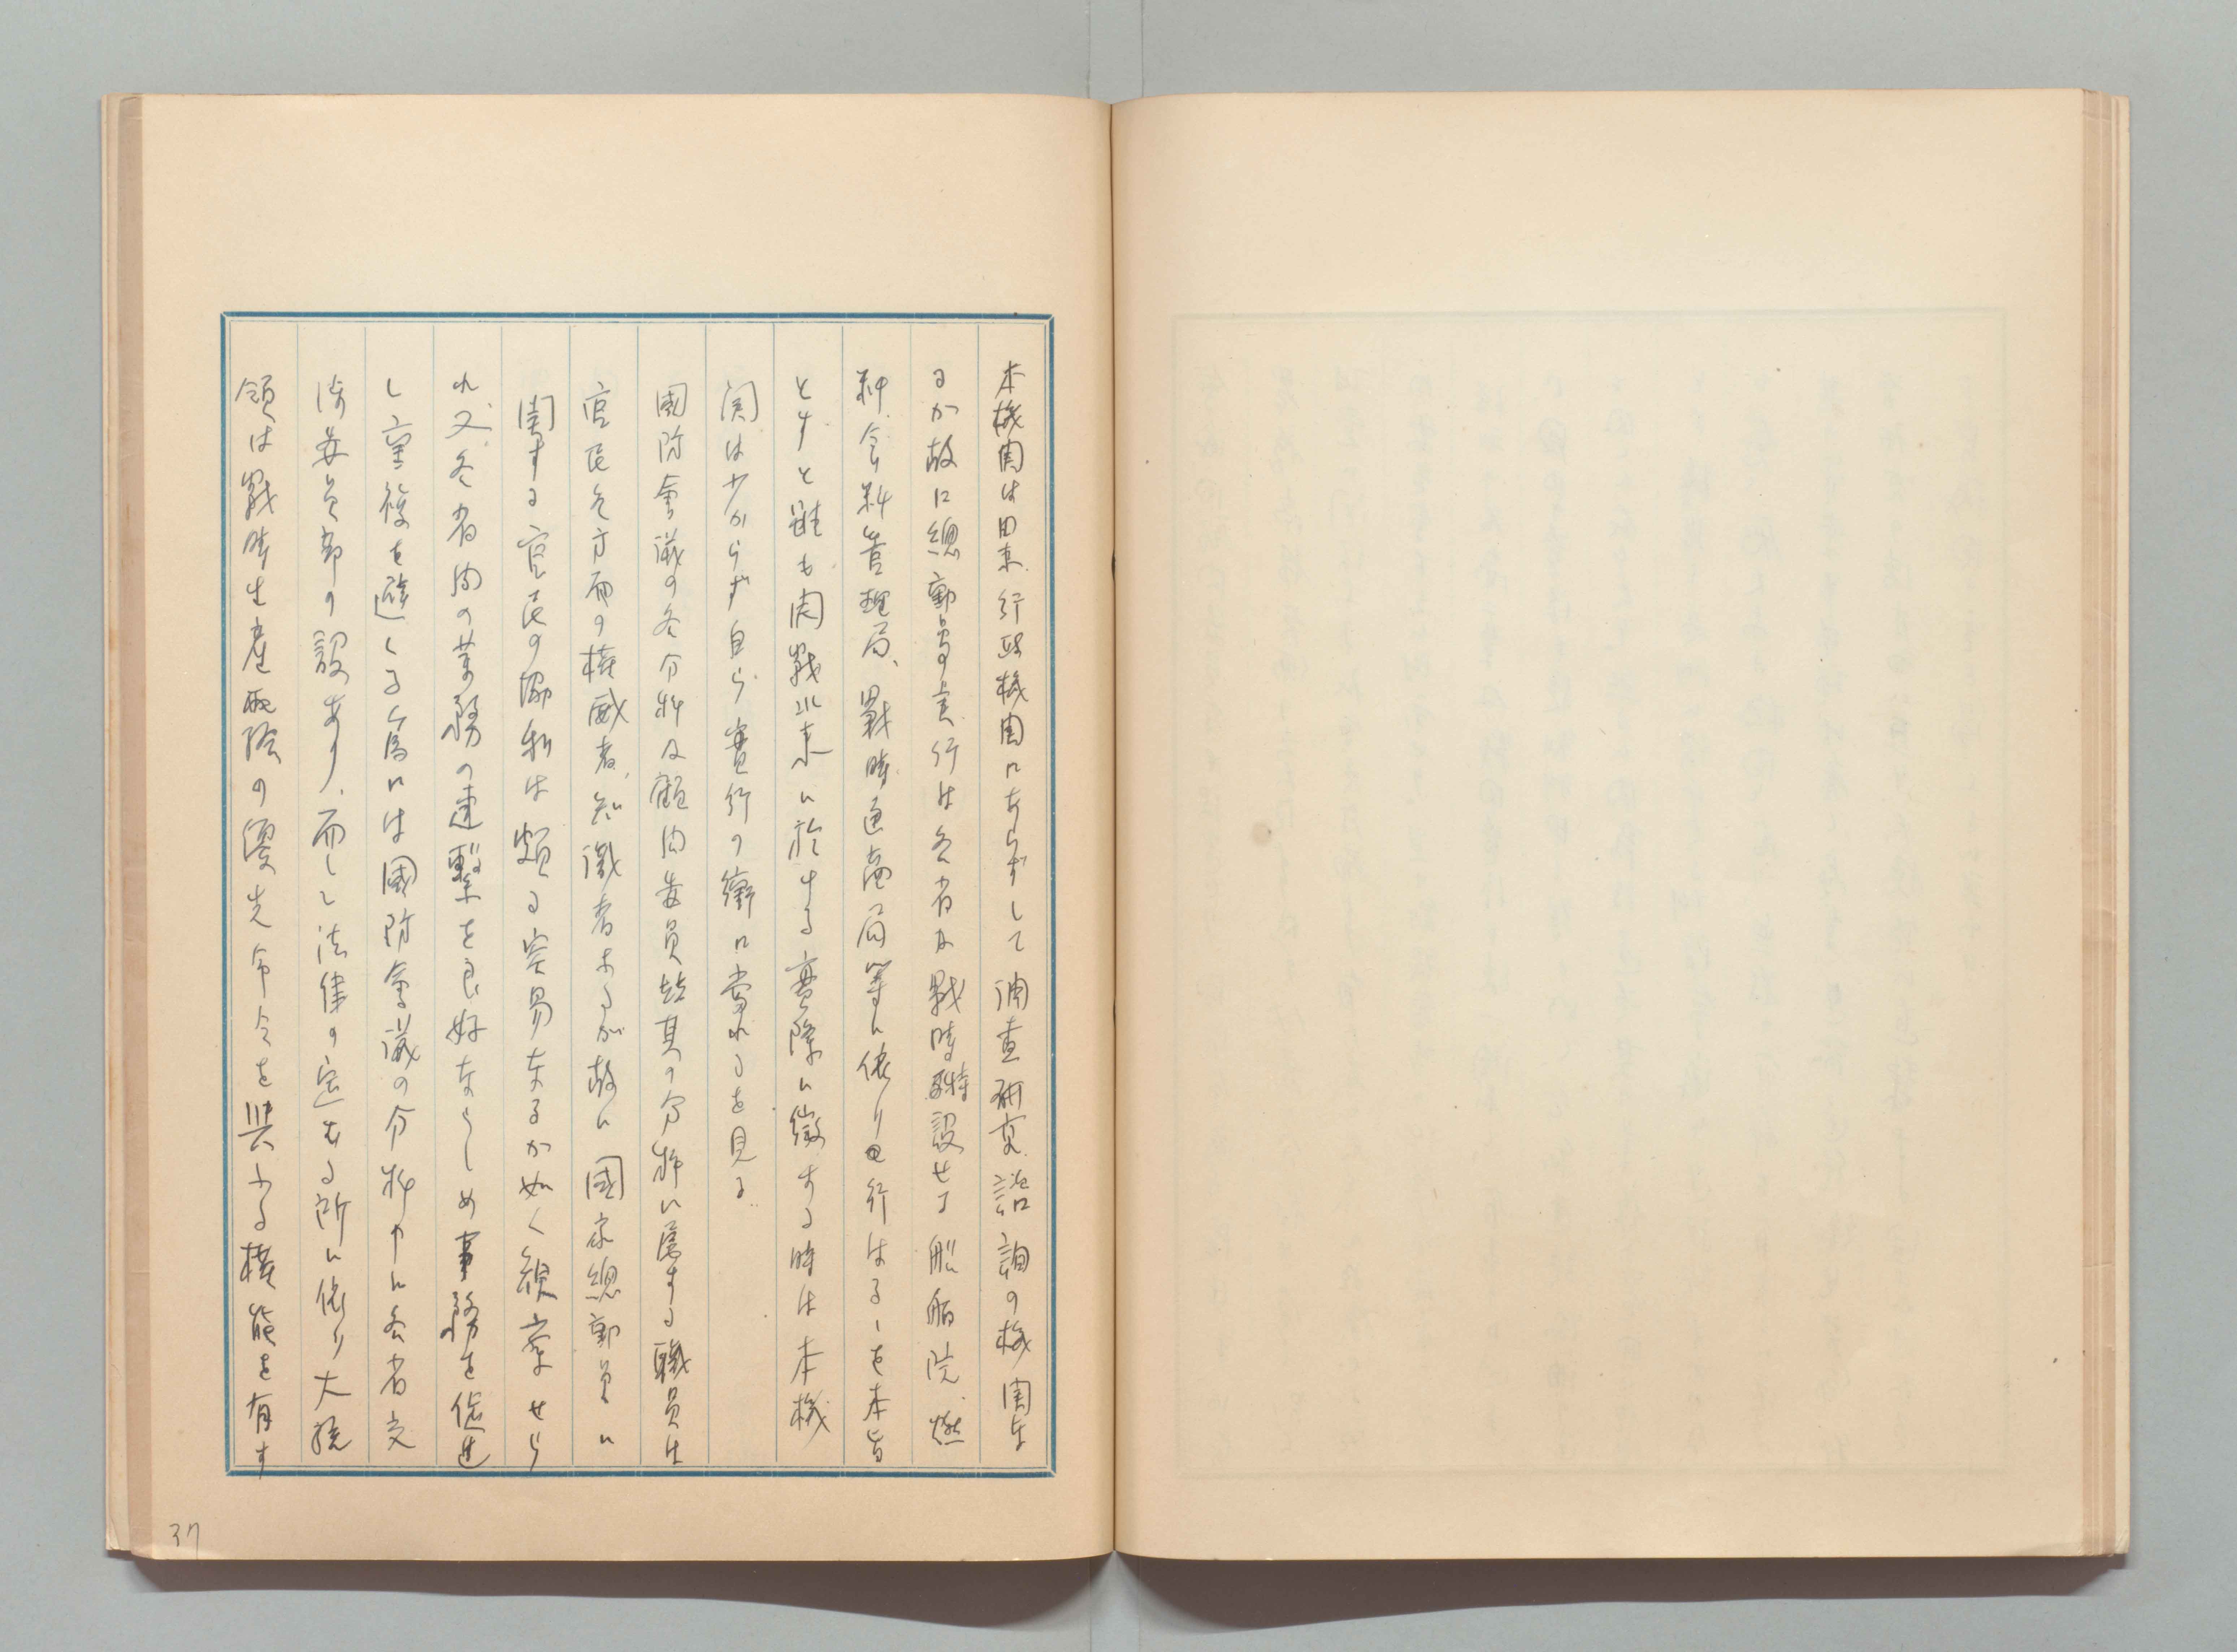 本機関は由来行政機関にあらずして調査研究諮詢の機関な
るか故に總動員実行は各省及戰時特設せる船舶院、燃
料、食料管理局、戰時通商局等に依り行はるゝを本旨
とすと雖も開戰以来に於ける實際に徴する時は本機
関は少からず自ら實行の衝に當れるを見る
國防會議の各分科及顧問委員竝其の分科に属する職員は
官民各方面の権威者、知識者なるが故に國家總動員に
関する官民の協和は頗る容易なるか如く観察せら
れ又各省間の業務の連繋を良好ならしめ事務を促進
し重複を避くる為には國防會議の分科中に各省交
渉委員部の設あり、而して法律の定むる所に依り大統
領は戰時生産配給の優先命令を與ふる権能を有す
37